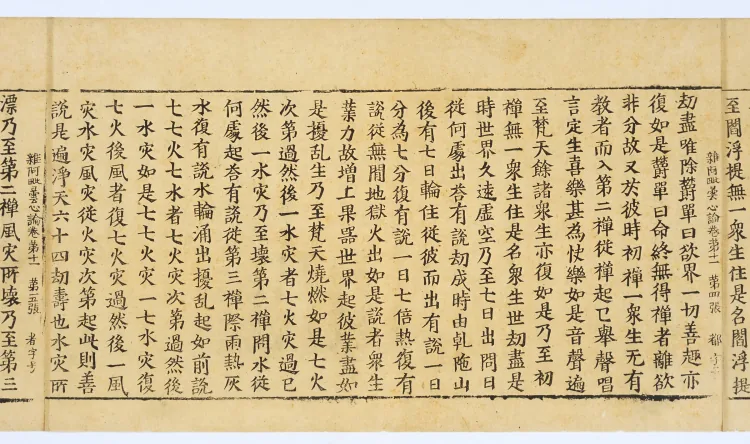 至閻浮提無一衆生住是名閻浮提
雜阿毗曇心論卷第十一 第四張
劫盡唯除欝單曰欲界一切善趣亦
復如是欝單曰命終無得禪者離欲
非分故又於彼時初禪一衆生无有
教者而入第二禪従禪起已舉聲唱
言定生喜樂甚為快樂如是音聲遍
至梵天餘諸衆生亦復如是乃至初
禪無一衆生住是名衆生世劫盡是
時世界久遠虛空乃至七日出問日
従何處出荅有説劫成時由乹陁山
後有七日輪住従彼而出有説一日
分為七分復有説一日七倍熱復有
説従無間地獄火出如是説者衆生
業力故増上果器世界起彼業盡如
是擾乱生乃至梵天燒燃如是七火
次第過然後一水灾者七火灾過已
然後一水灾乃至壊第二禪問水従
何處起荅有説従第三禪際雨熱灰
水復有説水輪涌出擾乱起如前説
七七火七水者七火灾次第過然後
一水灾如是七七火灾一七水灾復
七火後風者復七火灾過然後一風
灾水灾風灾従火灾次第起此則善
説是遍淨天六十四劫壽也水灾所
雜阿毗曇心論卷第十一 第五張 者字号
漂乃至第二禪風灾所壊乃至第三